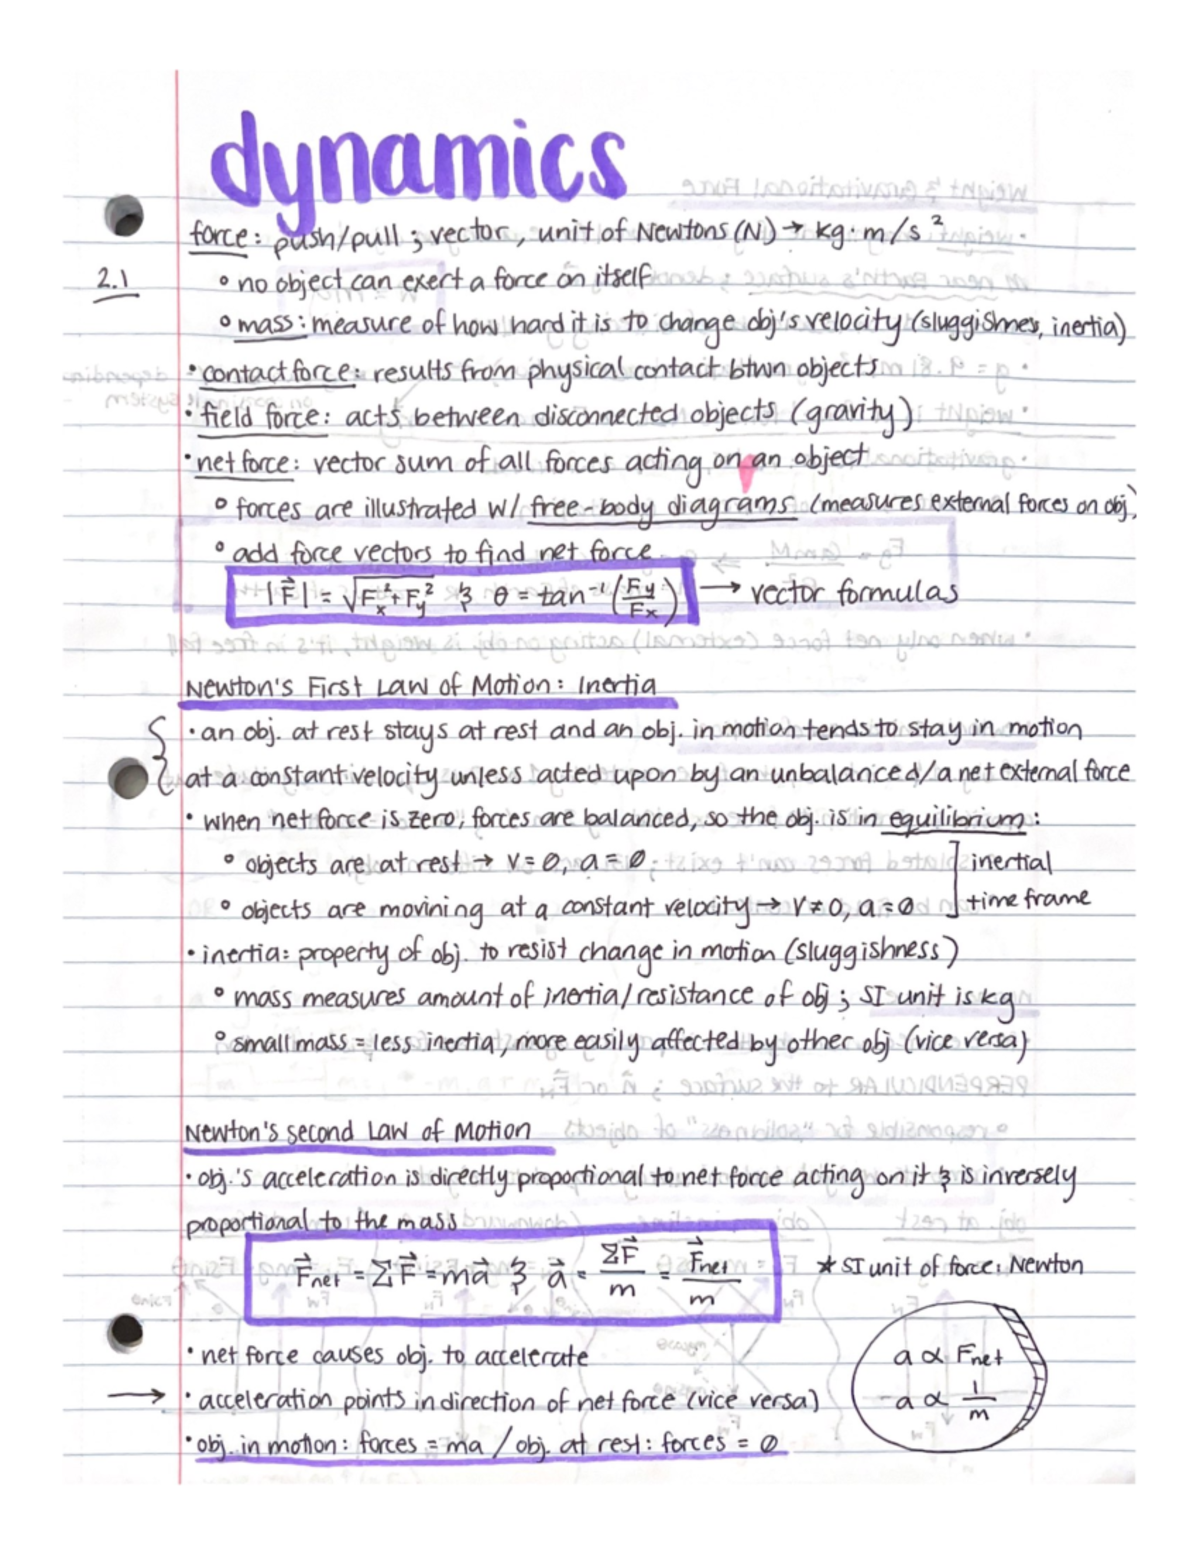 dynamics
force: push/pull ; vector, unit of Newtons (N) → kg · m/s²
2.1
◦ no object can exert a force on itself
◦ mass: measure of how hard it is to change obj's velocity (sluggishnes, inertia)
· contact force: results from physical contact btwn objects
· field force: acts between disconnected objects (gravity)
· net force: vector sum of all forces acting on an object
◦ forces are illustrated w/ free-body diagrams (measures external forces on obj.)
◦ add force vectors to find net force
|F⃗| = √(Fₓ² + Fᵧ²) & θ = tan⁻¹(Fy/Fx) → vector formulas
Newton's First Law of Motion: Inertia
· an obj. at rest stays at rest and an obj. in motion tends to stay in motion
at a constant velocity unless acted upon by an unbalanced/a net external force
· when net force is zero, forces are balanced, so the obj. is in equilibrium:
◦ objects are at rest → v = 0, a = 0
◦ objects are movining at a constant velocity → v ≠ 0, a = 0
inertial
time frame
· inertia: property of obj. to resist change in motion (sluggishness)
◦ mass measures amount of inertia/resistance of obj ; SI unit is kg
◦ small mass = less inertia, more easily affected by other obj (vice versa)
Newton's second Law of Motion
· obj.'s acceleration is directly proportional to net force acting on it & is inversely
proportional to the mass
F⃗net = ΣF⃗ = ma⃗ & a⃗ = ΣF⃗/m = F⃗net/m
* SI unit of force: Newton
· net force causes obj. to accelerate
→ · acceleration points in direction of net force (vice versa)
· obj. in motion: forces = ma / obj. at rest: forces = 0
a ∝ Fnet
a ∝ 1/m